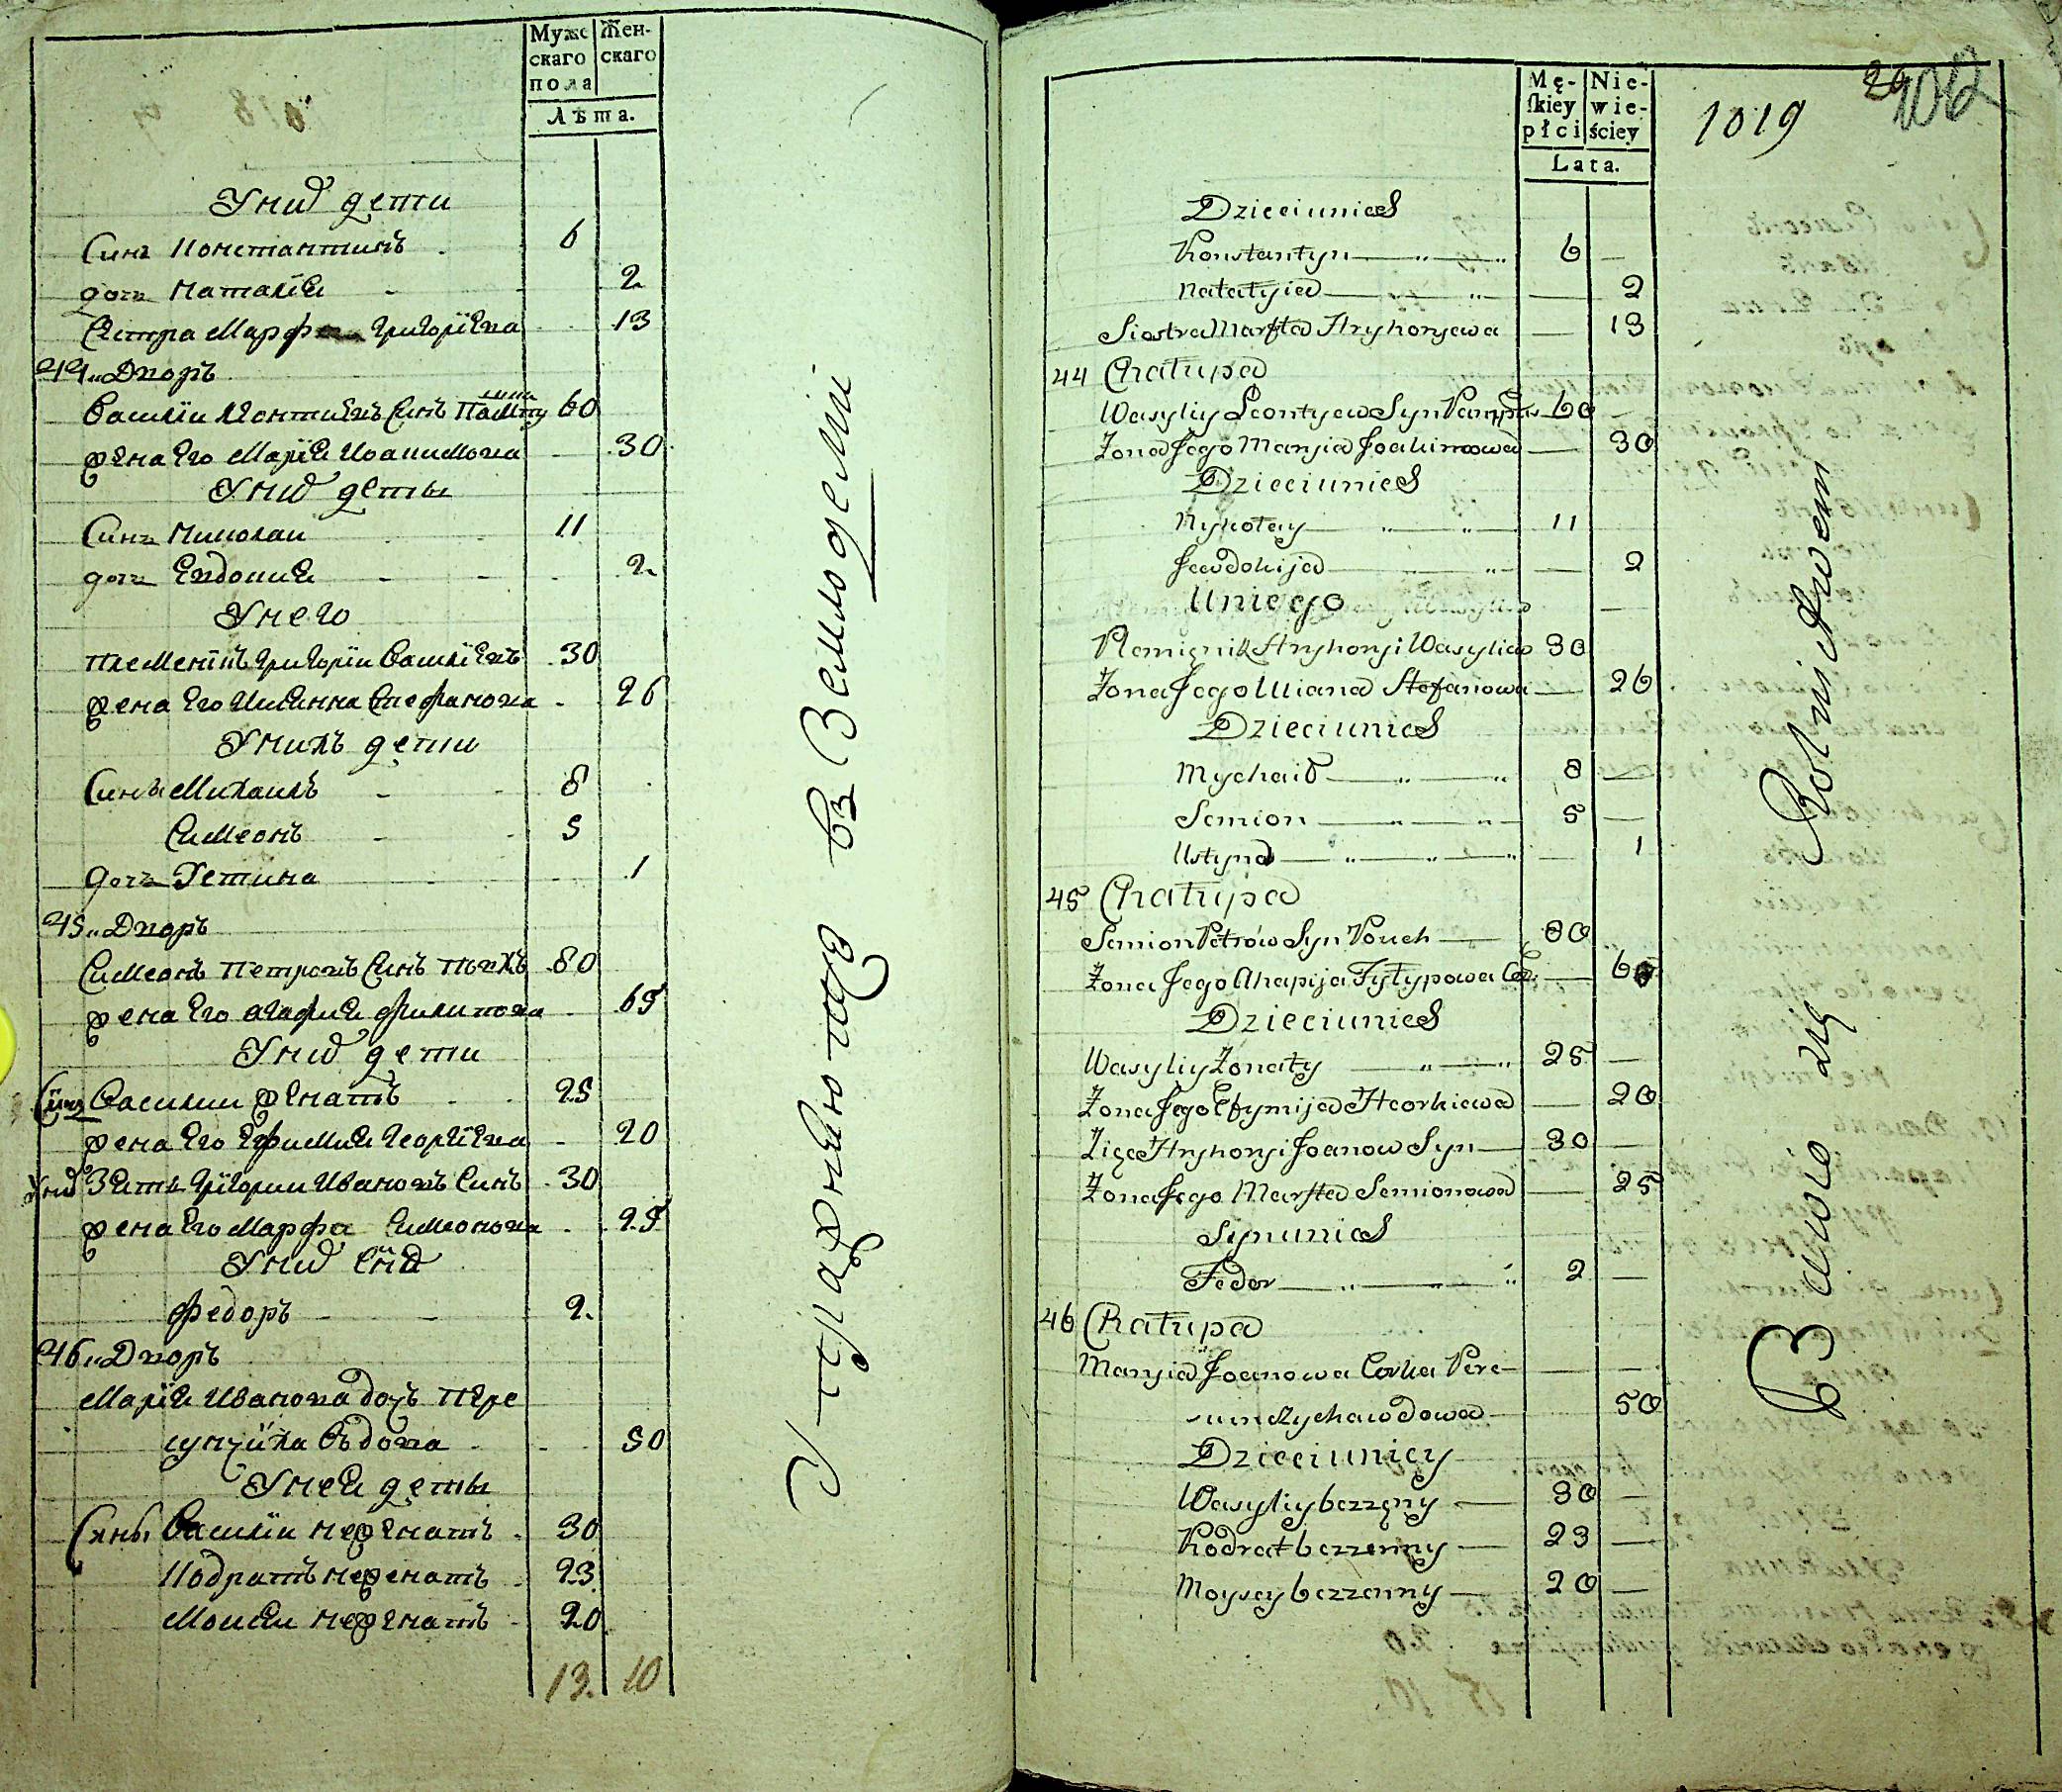 Муже
скаго
пола
Жен-
скаго
Лѣта.
Унид дети
Синъ Константинъ 6
дочъ Наталїя 2
Сестра Марфа Григорїева 13
44 Дворъ
Василїи Леонтиевъ Синъ 60
жена Его Марїя Иоакимова 30
Унид деты
Синъ Николаи 11
дочъ Евдокия 2
Унего
племенїкъ Григорїи Василїевъ 30
жена Его Улиянна Стефанова 26
Унихъ дети
Сины Михаилъ 8
Симеонъ 5
дочъ Устина 1
45 Дворъ
Симеонъ Петровъ Синъ 80
жена Его Агафия Филипова 65
Унид дети
Синъ Василии женатъ 25
жена Его Ефимия Георгїева 20
Унид Зять Григории Ивановъ Синъ 30
жена Его Марфа Симеонова 25
Унид Снъ
Федоръ 2
46 Дворъ
Марїя Иванова дочъ Пере
сунчиха вдова 50
Унея деты
Сины Василїи неженатъ 30
Кодратъ неженатъ 23
Моисеи неженатъ 20
13. 10
Упражняютца въ Земледелїи
Mę-
ſkiey
płci
Nie-
wie-
ściey
Lata.
1019
Dzieciunich
Konstantyn 6 —
Natalyia — 2
Siostra Marfta Hryhoryewa — 13
44 Chałupa
Wasyliy Leontyew Syn 60 —
Żona Jego Maryia Joakimowa — 30
Dzieciunich
Nykołay 11
Jewdokija — 2
Uniego —
Plemięnik Hryhoryi Wasyliew 30
Żona Jego Uliana Stefanowa — 26
Dzieciunich
Mychaiło 8 —
Semion 5 —
Ustyna — 1
45 Chałupa
Semion Petrów Syn Pouch 80
Żona Jego Ahapija Fylypowa — 65
Dzieciunich
Wasyliy Żonaty 25 —
Żona Jego Efymija Heorhiewa — 20
Zięć Hryhoryi Joanow Syn 30 —
Żona Jego Marfta Semionowa — 25
Synunich
Fedor 2 —
46 Chałupa
Maryia Joanowa Corka Pere- — —
sunczycha wdowa 50
Dzieciunicy
Wasyliy bezzęny 30 —
Kodrat bezzenny 23 —
Moysey bezzenny 20 —
Bawio się Rolnictwem